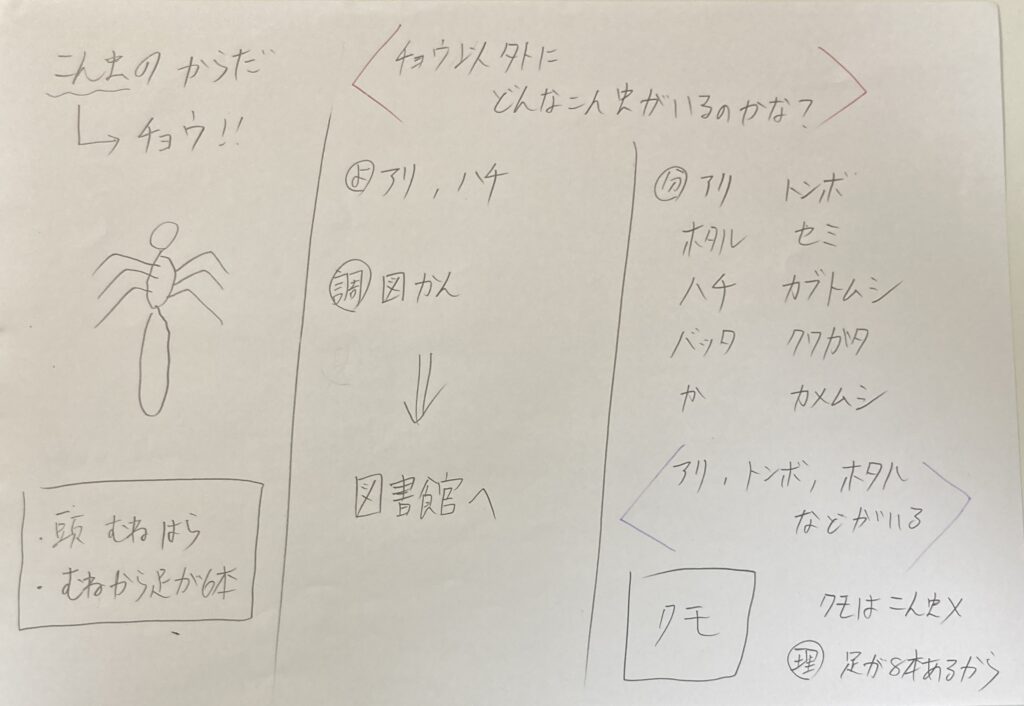 こん虫のからだ
→チョウ!!
・頭 むね はら
・むねから足が6本
チョウ以外に
どんなこん虫がいるのかな?
よ アリ, ハチ
調 図かん
図書館へ
分 アリ トンボ
ホタル セミ
ハチ カブトムシ
バッタ クワガタ
か カメムシ
アリ, トンボ, ホタル
などがいる
クモ
クモはこん虫×
理 足が8本あるから